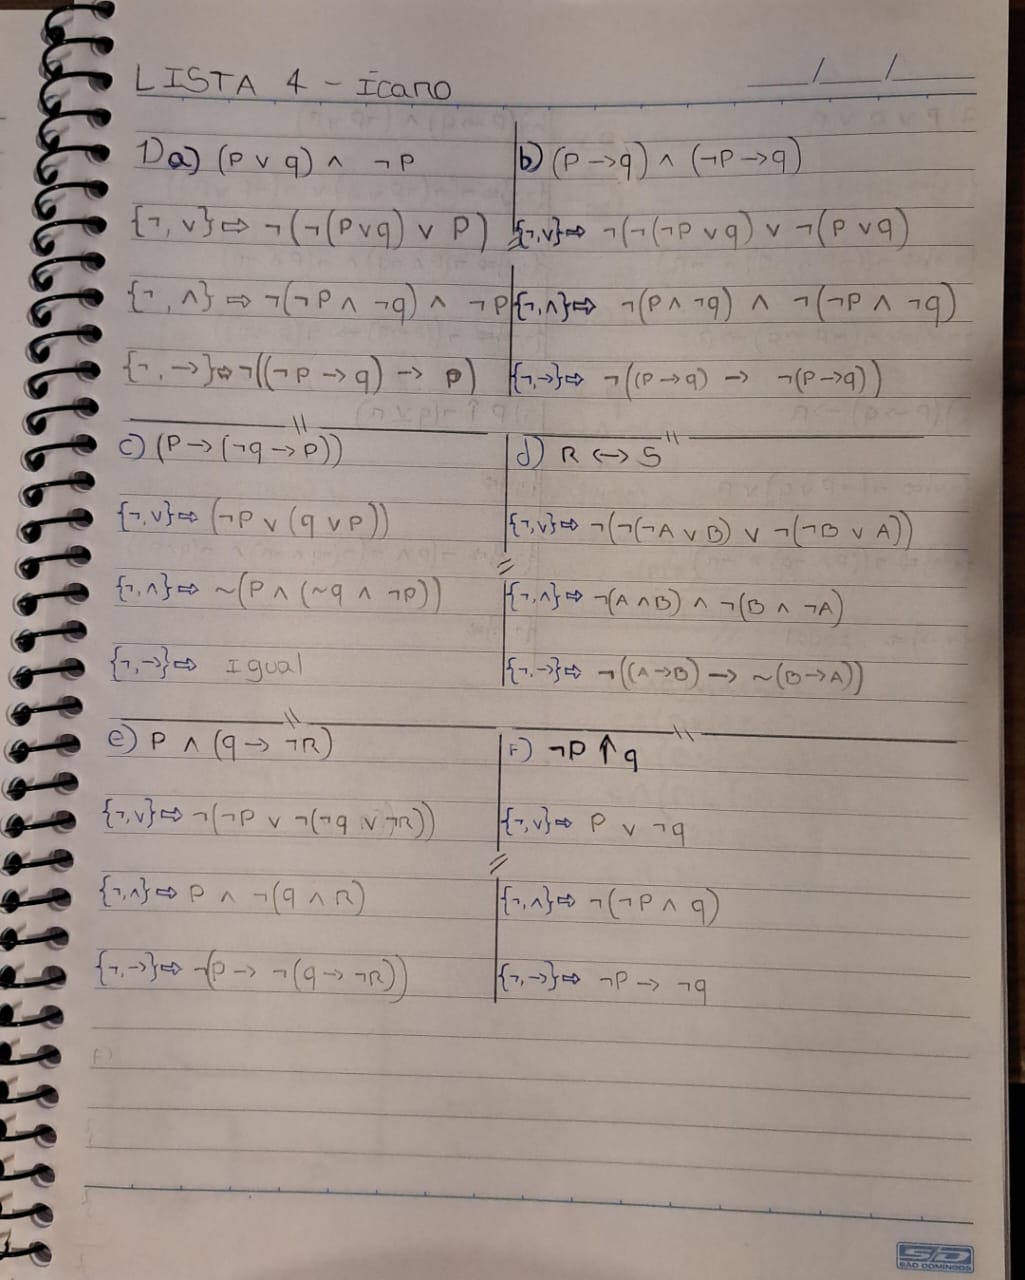 LISTA 4 - Ícaro
__/__/__
1) a) (P ∨ q) ∧ ¬P
{¬, ∨} ⇨ ¬(¬(P∨q) ∨ P)
{¬, ∧} ⇨ ¬(¬P ∧ ¬q) ∧ ¬P
{¬, →} ⇨ ¬((¬P → q) → P)
b) (P → q) ∧ (¬P → q)
{¬,∨} ⇨ ¬(¬(¬P ∨ q) ∨ ¬(P ∨ q)
{¬,∧} ⇨ ¬(P ∧ ¬q) ∧ ¬(¬P ∧ ¬q)
{¬,→} ⇨ ¬((P → q) → ¬(P → q))
c) (P → (¬q → P))
{¬,∨} ⇨ (¬P ∨ (q ∨ P))
{¬,∧} ⇨ ~(P ∧ (~q ∧ ¬P))
{¬,→} ⇨ Igual
d) R ↔ S
{¬,∨} ⇨ ¬(¬(¬A ∨ B) ∨ ¬(¬B ∨ A))
{¬,∧} ⇨ ¬(A ∧ B) ∧ ¬(B ∧ ¬A)
{¬,→} ⇨ ¬((A → B) → ~(B → A))
e) P ∧ (q → ¬R)
{¬,∨} ⇨ ¬(¬P ∨ ¬(¬q ∨ ¬R))
{¬,∧} ⇨ P ∧ ¬(q ∧ R)
{¬,→} ⇨ ¬(P → ¬(q → ¬R))
F) ¬P ↑ q
{¬,∨} ⇨ P ∨ ¬q
{¬,∧} ⇨ ¬(¬P ∧ q)
{¬,→} ⇨ ¬P → ¬q
F)
SD
SÃO DOMINGOS